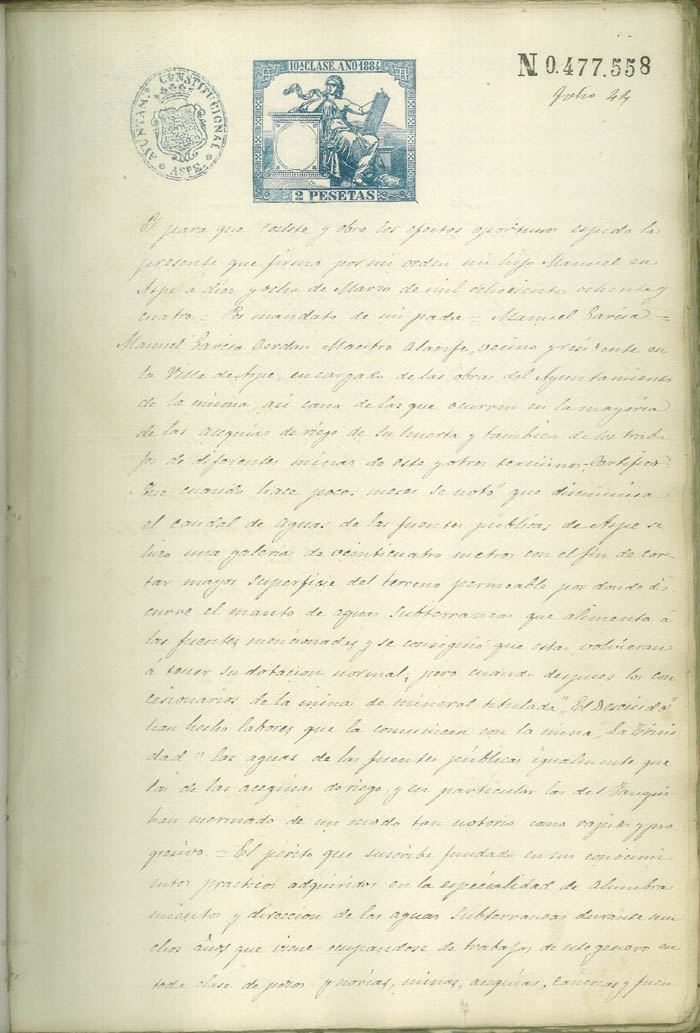 AYUNTAM. CONSTITUCIONAL
ASPE
10ª CLASE. AÑO 1884
2 PESETAS
N 0.477.558
Julio 24
Y para que coste y obre los efectos oportunos espido la
presente que firma por mi orden mi hijo Manuel en
Aspe á diez y ocho de Marzo de mil ochocientos ochenta y
cuatro = Por mandato de mi padre = Manuel Garcia =
Manuel Garcia Cerdan Maestro Alarife, vecino y residente en
la Villa de Aspe, encargado de las obras del Ayuntamiento
de la misma, asi como de las que ocurren en la mayoria
de las acequias de riego de su huerta y tambien de los traba
jos de diferentes minas de este y otros terminos = Certifico:
Que cuando hace pocos meses se notó que disminuia
el caudal de aguas de las fuentes públicas de Aspe se
hizo una galeria de veinticuatro metros con el fin de cor-
tar mayor superficie del terreno permeable por donde dis
curre el manto de aguas subterraneas que alimenta á
las fuentes mencionadas y se consiguió que estas volvieran
á tener su dotacion normal; pero cuando despues los con
cesionarios de la mina de mineral titulada "El Descuido"
han hecho labores que la comunican con la mina "La Trini
dad" las aguas de las fuentes públicas igualmente que
las de las acequias de riego, y en particular las del Fauquí
han mermado de un modo tan notorio como rapido y pro
gresivo. = El perito que suscribe fundado en sus conocimi
entos practicos adquiridos en la especialidad de alumbra
mientos y direccion de las aguas subterraneas durante mu
chos años que viene ocupandose de trabajos de este genero en
toda clase de pozos y norias, minas, acequias, cañerias y fuen